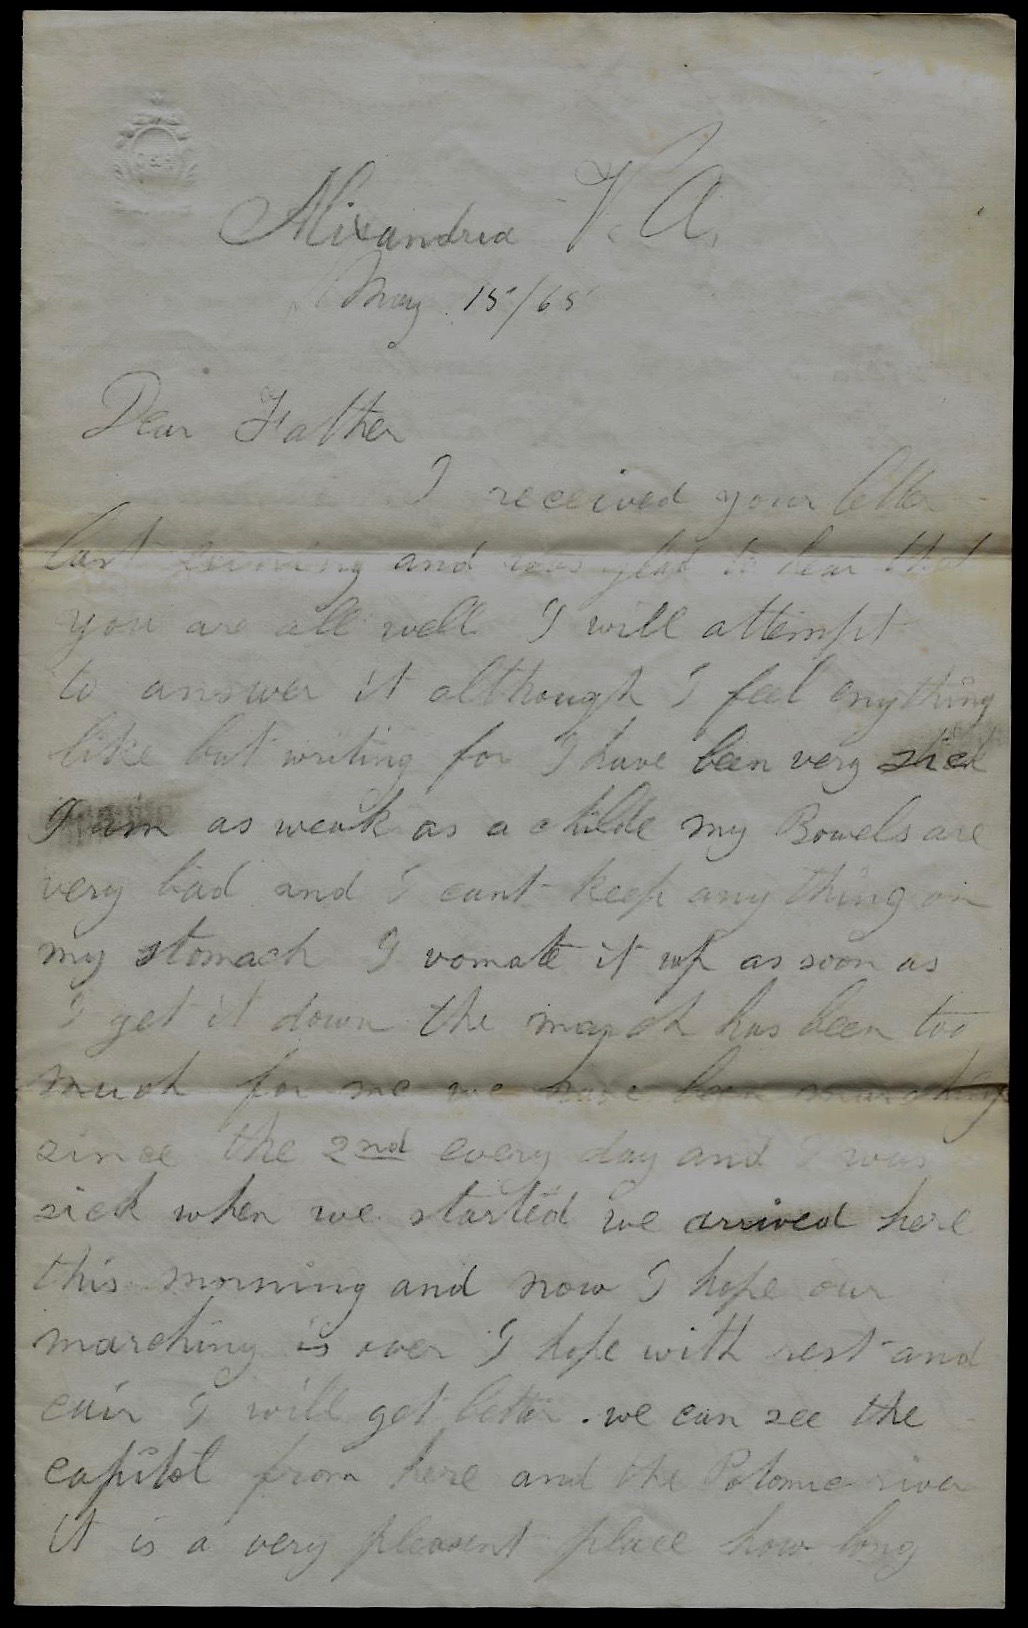 Alixandria V. A.
May 15/65
Dear Father
I received your letter
last evening and was glad to hear that
you are all well I will attempt
to answer it although I feel enything
like but writing for I have been very sick
I am as weak as a childe my Bowels are
very bad and I cant keep any thing on
my stomach I vomate it up as soon as
I get it down the march has been too
much for me we have been marching
since the 2nd every day and I was
sick when we started we arrived here
this morning and now I hope our
marching is over I hope with rest and
cair I will get better. we can see the
capitol from here and the Potomic river
it is a very pleasent place how long